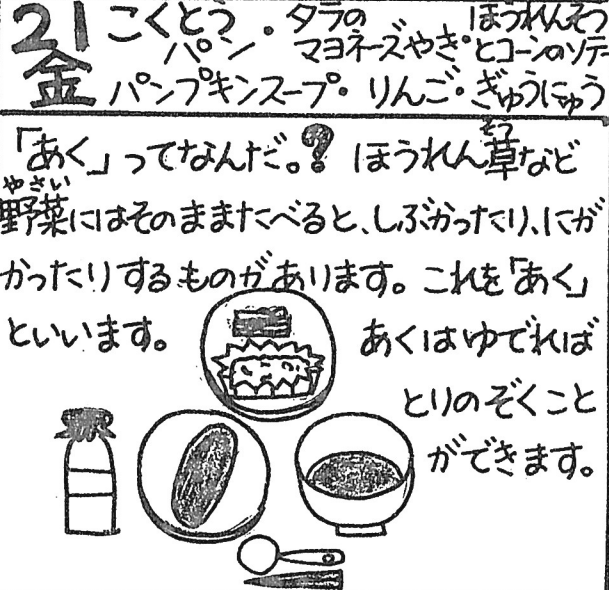 21 金
こくとうパン・タラのマヨネーズやき・ほうれんそうとコーンのソテー
パンプキンスープ・りんご・ぎゅうにゅう
「あく」ってなんだ。? ほうれん草など
野菜にはそのままたべると、しぶかったり、にが
かったりするものがあります。これを「あく」
といいます。
あくはゆでれば
とりのぞくこと
ができます。